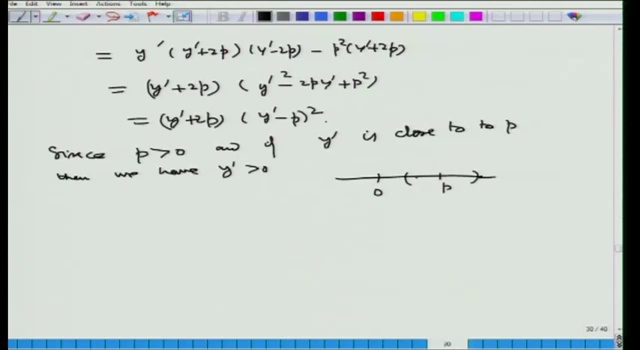 Edit View Insert Actions Tools Help
= y' (y'+2p) (y'-2p) - p²(y'+2p)
= (y'+2p) (y'² - 2py' + p²)
= (y'+2p) (y'-p)².
Since p>0 and if y' is close to to p
then we have y' >0
0 p
30 / 40
30